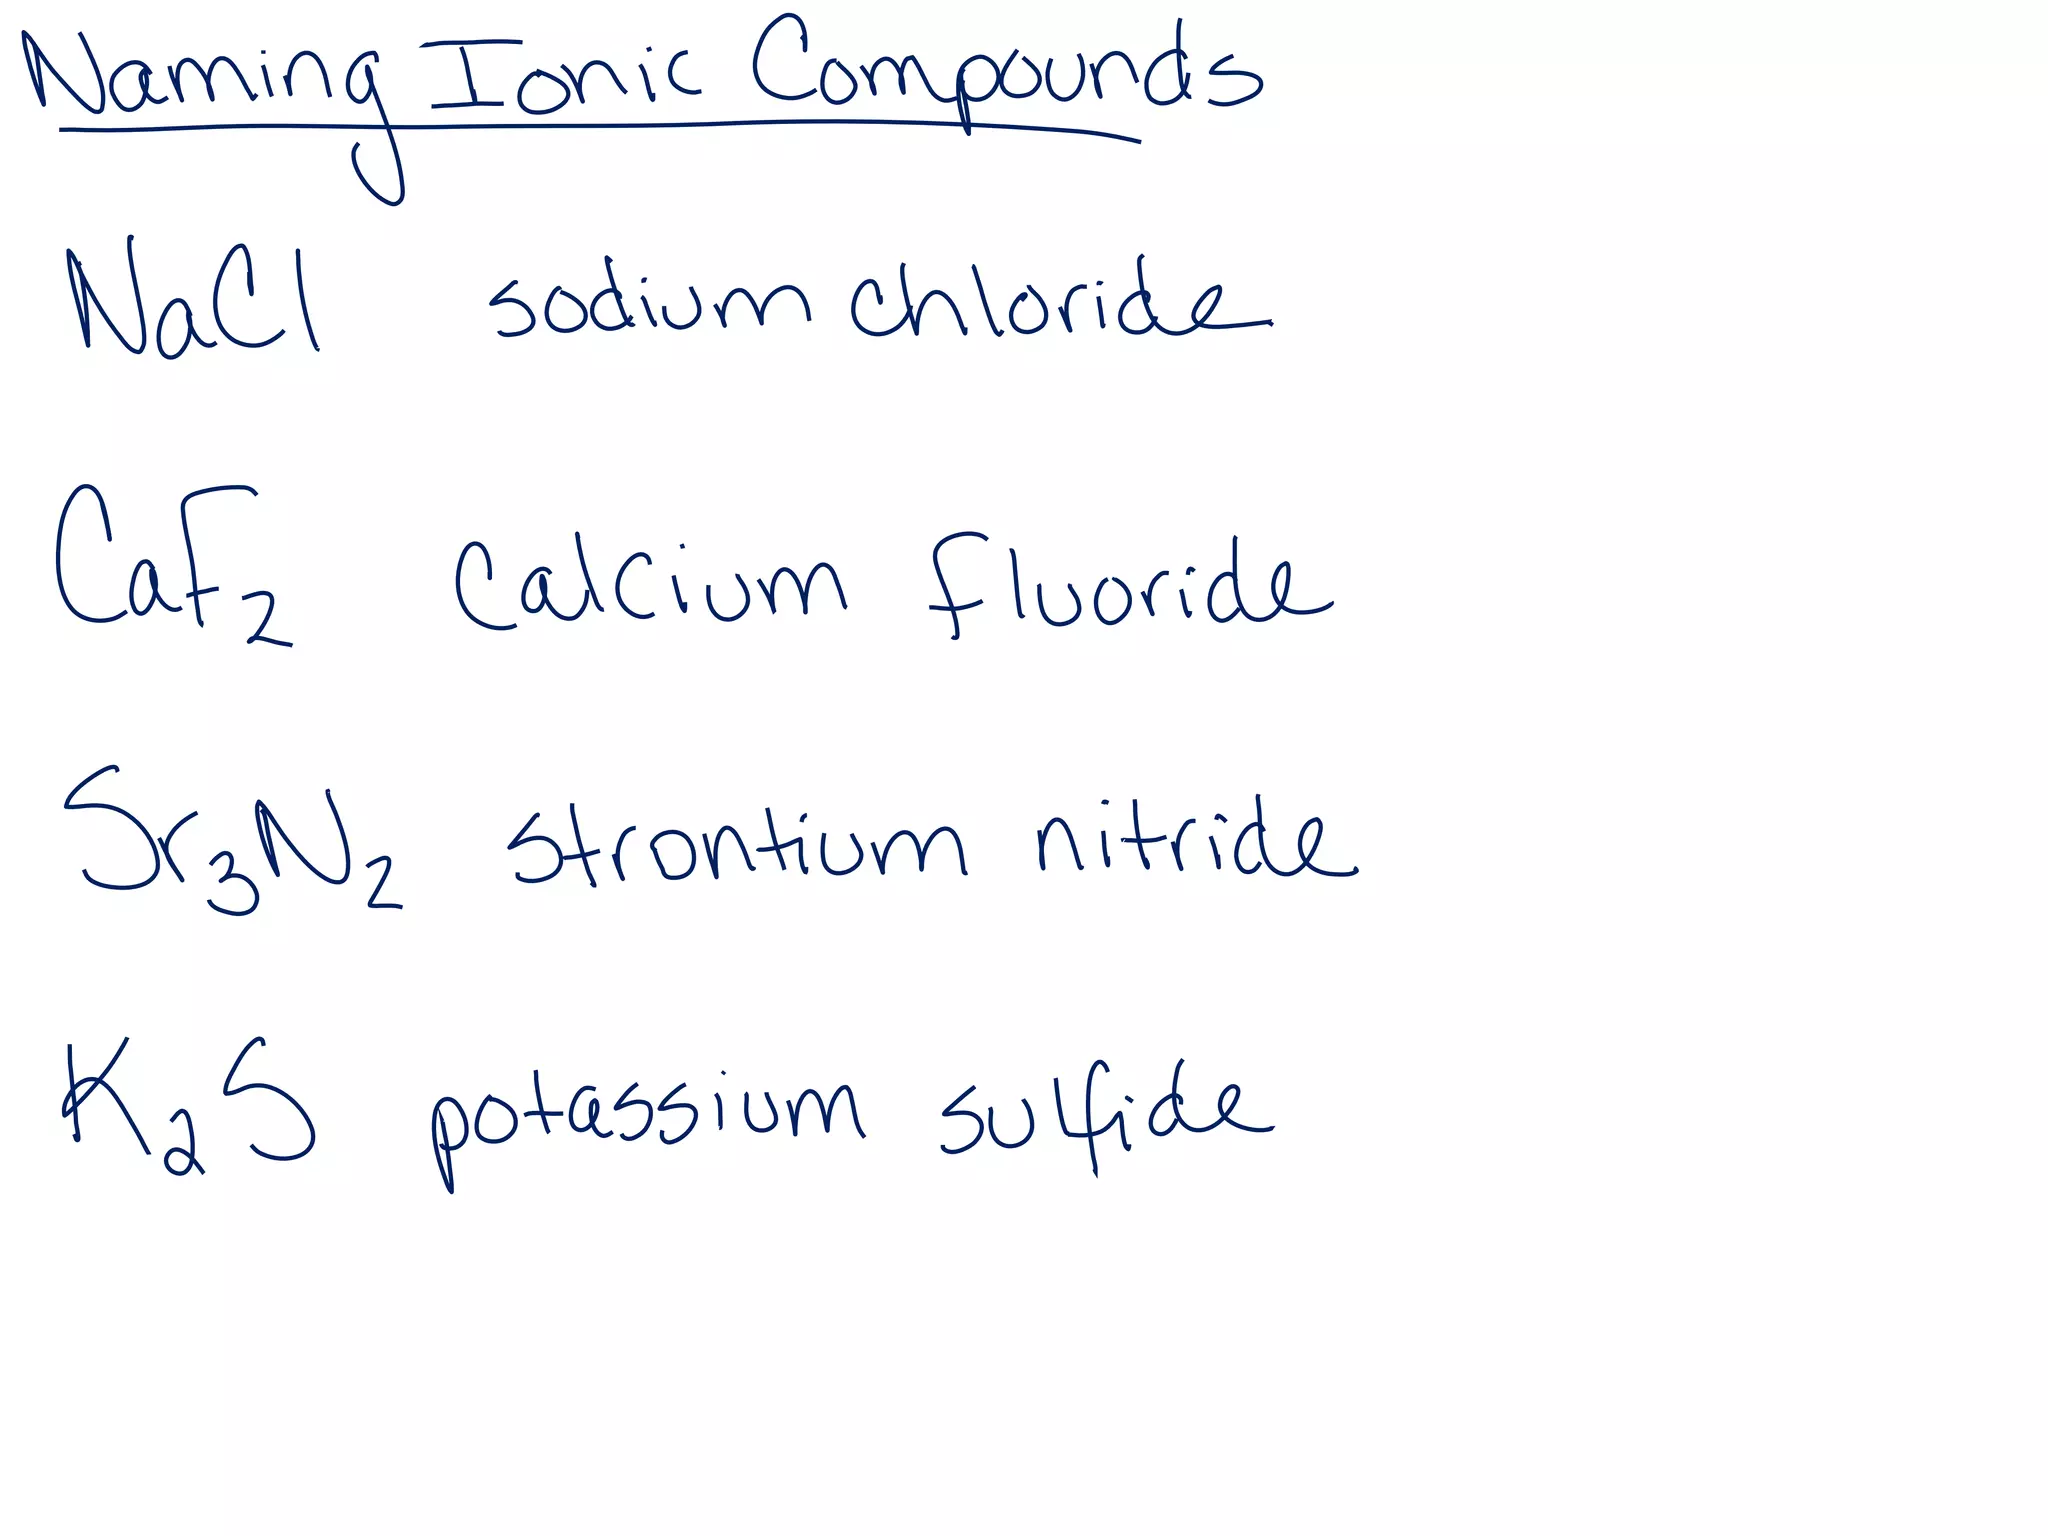 Naming Ionic Compounds
NaCl sodium chloride
CaF₂ Calcium fluoride
Sr₃N₂ strontium nitride
K₂S potassium sulfide